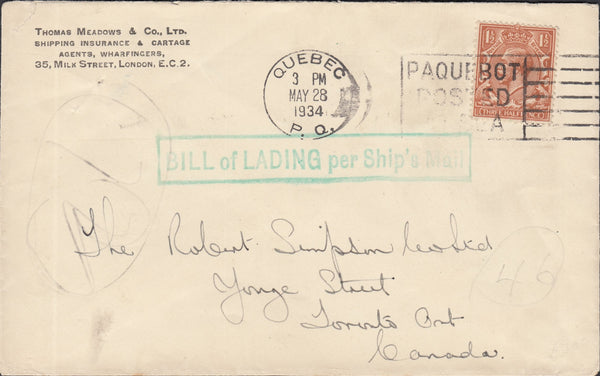 THOMAS MEADOWS & CO., LTD.
SHIPPING INSURANCE & CARTAGE
AGENTS, WHARFINGERS,
35, MILK STREET, LONDON, E.C.2.
QUEBEC
3 PM
MAY 28
1934
P. Q.
PAQUEBOT
POSTED
1½ 1½
THREE HALFPENCE
BILL of LADING per Ship's Mail
The Robert Simpson Co Ltd
Yonge Street
Toronto Ont
Canada.
46